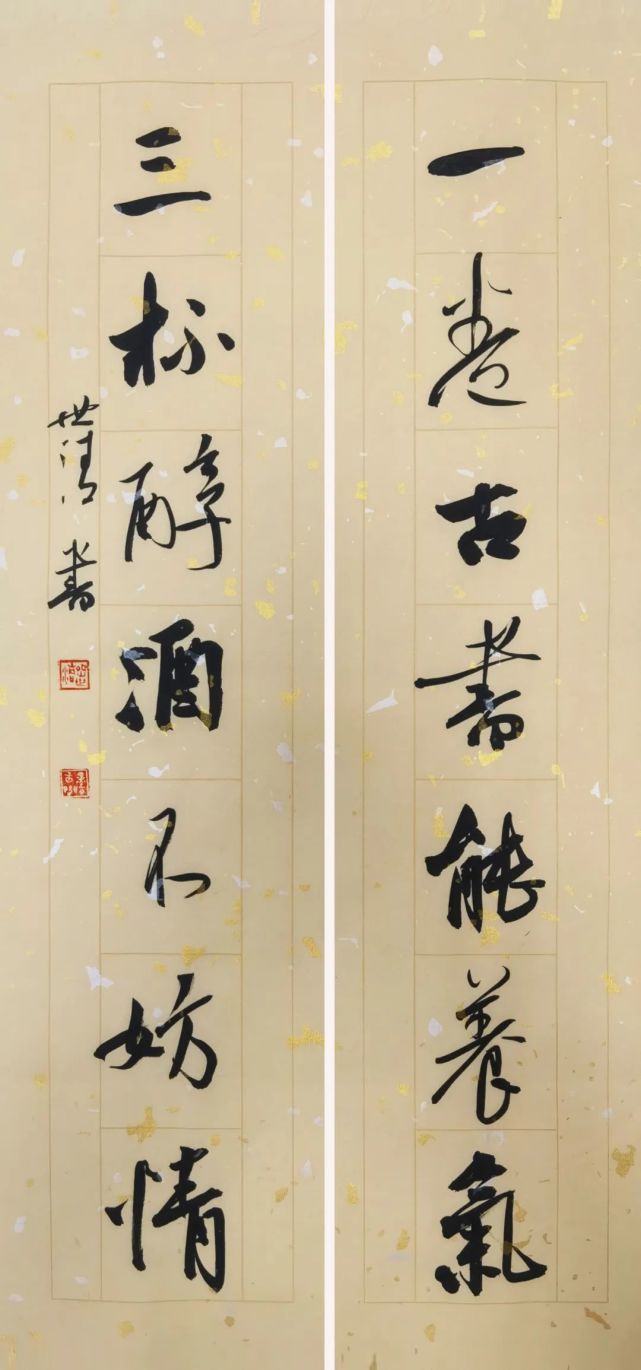 一卷古書能養氣
三杯醇酒不妨情
世清書